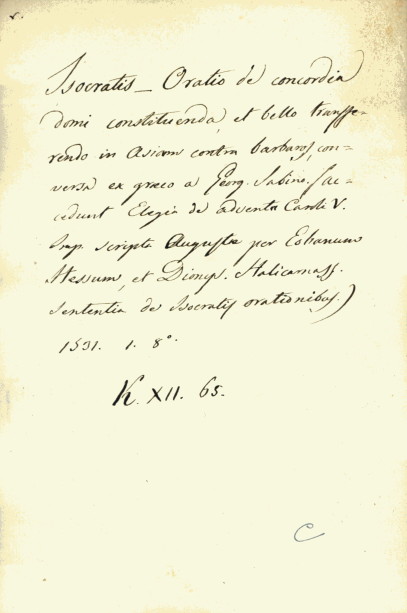 Isocratis _ Oratio de concordia
domi constituenda, et bello transfe-
rendo in Asiam contra barbaros, con-
versa ex graeco a Georg. Sabino. (ac-
cedunt Elegia de adventu Caroli V.
Imp. scripta Augustae per Eobanum
Hessum, et Dionys. Halicarnass.
sententia de Isocratis orationibus.)
1531. 1. 8°.
K. XII. 65.
C